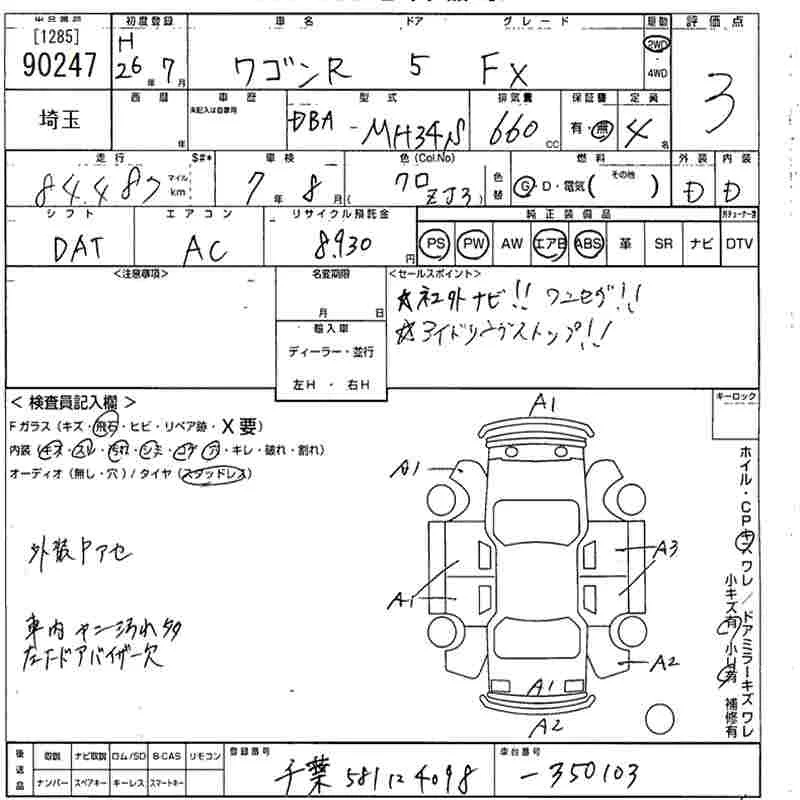 [1285]
90247
初度登録 車名 ドア グレード 駆動 評価点
H 26年 7月 ワゴンR 5 FX 2WD 3
4WD
埼玉
西暦 車歴 型式 排気量 保証書 定員
未記入は自家用
年 DBA - MH34S 660 CC 有・無 4 名
走行 S#* 車検 色(Col.No) 燃料 外装 内装
84.487 マイル km 7年 8月 ( クロ ZJ3 ) 色替 G・D・電気( その他 ) D D
シフト エアコン リサイクル預託金 純正装備品
DAT AC 8,930円 PS PW AW エアB ABS 革 SR ナビ DTV
<注意事項> 名変期限 <セールスポイント>
月 日
☆社外ナビ!! ワンセグ!!
☆アイドリングストップ!!
輸入車
ディーラー・並行
左H・右H
< 検査員記入欄 >
キーロック
Fガラス (キズ・飛石・ヒビ・リペア跡・X要)
内装 (キズ・スレ・汚れ・シミ・コゲ・穴・キレ・破れ・割れ)
オーディオ (無し・穴) / タイヤ (スタッドレス)
外装Pアセ
車内ヤニ汚れ多
左Fドアバイザー欠
A1
A1
A3
A1
A2
A1
A2
ホイル・CPキズワレ/ドアミラーキズワレ
小キズ有 小U有 補修有
後送品 取説 ナビ取説 ロム/SD B-CAS リモコン
ナンバー スペアキー キーレス スマートキー
登録番号 車台番号
千葉 581 に 4098 -350103